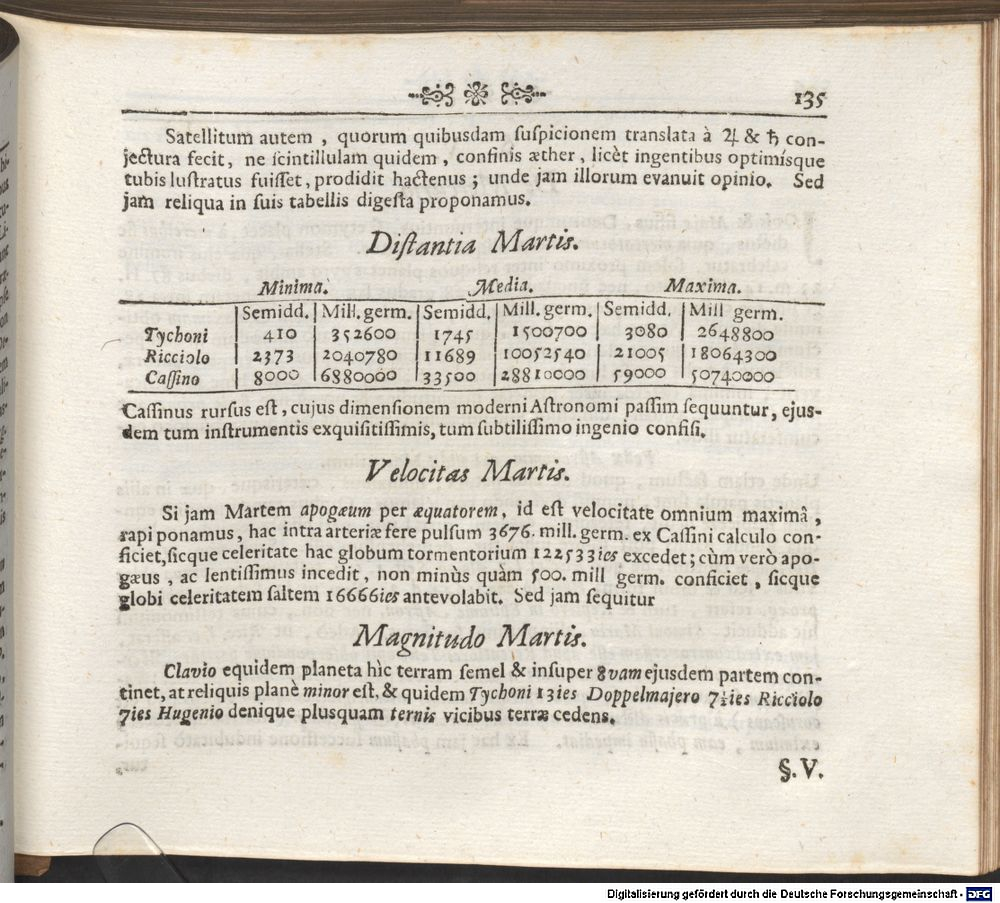 135
Satellitum autem, quorum quibusdam ſuſpicionem translata à ♃ & ♄ con-
jectura fecit, ne ſcintillulam quidem, confinis æther, licèt ingentibus optimísque
tubis luſtratus fuiſſet, prodidit hactenus; unde jam illorum evanuit opinio. Sed
jam reliqua in ſuis tabellis digeſta proponamus.
Diſtantia Martis.
Minima. Media. Maxima.
Semidd. Mill. germ. Semidd. Mill. germ. Semidd. Mill germ.
Tychoni 410 352600 1745 1500700 3080 2648800
Ricciolo 2373 2040780 11689 10052540 21005 18064300
Caſſino 8000 6880000 33500 28810000 59000 50740000
Caſſinus rurſus eſt, cujus dimenſionem moderni Aſtronomi paſſim ſequuntur, ejus-
dem tum inſtrumentis exquiſitiſſimis, tum ſubtiliſſimo ingenio confiſi.
Velocitas Martis.
Si jam Martem apogæum per æquatorem, id eſt velocitate omnium maximâ,
rapi ponamus, hac intra arteriæ fere pulſum 3676. mill. germ. ex Caſſini calculo con-
ficiet, ſicque celeritate hac globum tormentorium 122533ies excedet; cùm verò apo-
gæus, ac lentiſſimus incedit, non minùs quàm 500. mill germ. conficiet, ſicque
globi celeritatem ſaltem 16666ies antevolabit. Sed jam ſequitur
Magnitudo Martis.
Clavio equidem planeta hìc terram ſemel & inſuper 8vam ejusdem partem con-
tinet, at reliquis planè minor eſt, & quidem Tychoni 13ies Doppelmajero 7½ies Ricciolo
7ies Hugenio denique plusquam ternis vicibus terræ cedens.
§. V.
Digitalisierung gefördert durch die Deutsche Forschungsgemeinschaft - DFG